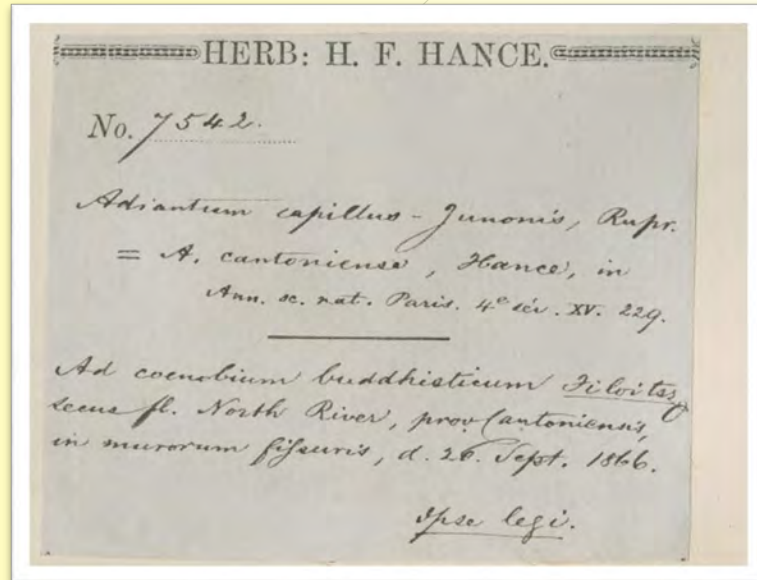 HERB: H. F. HANCE.
No. 7542.
Adiantum capillus-Junonis, Rupr.
= A. cantoniense, Hance, in
Ann. sc. nat. Paris. 4e sér. XV. 229.
Ad coenobium buddhisticum
secus fl. North River, prov. Cantoniensis,
in murorum fissuris, d. 26. Sept. 1866.
Ipse legi.